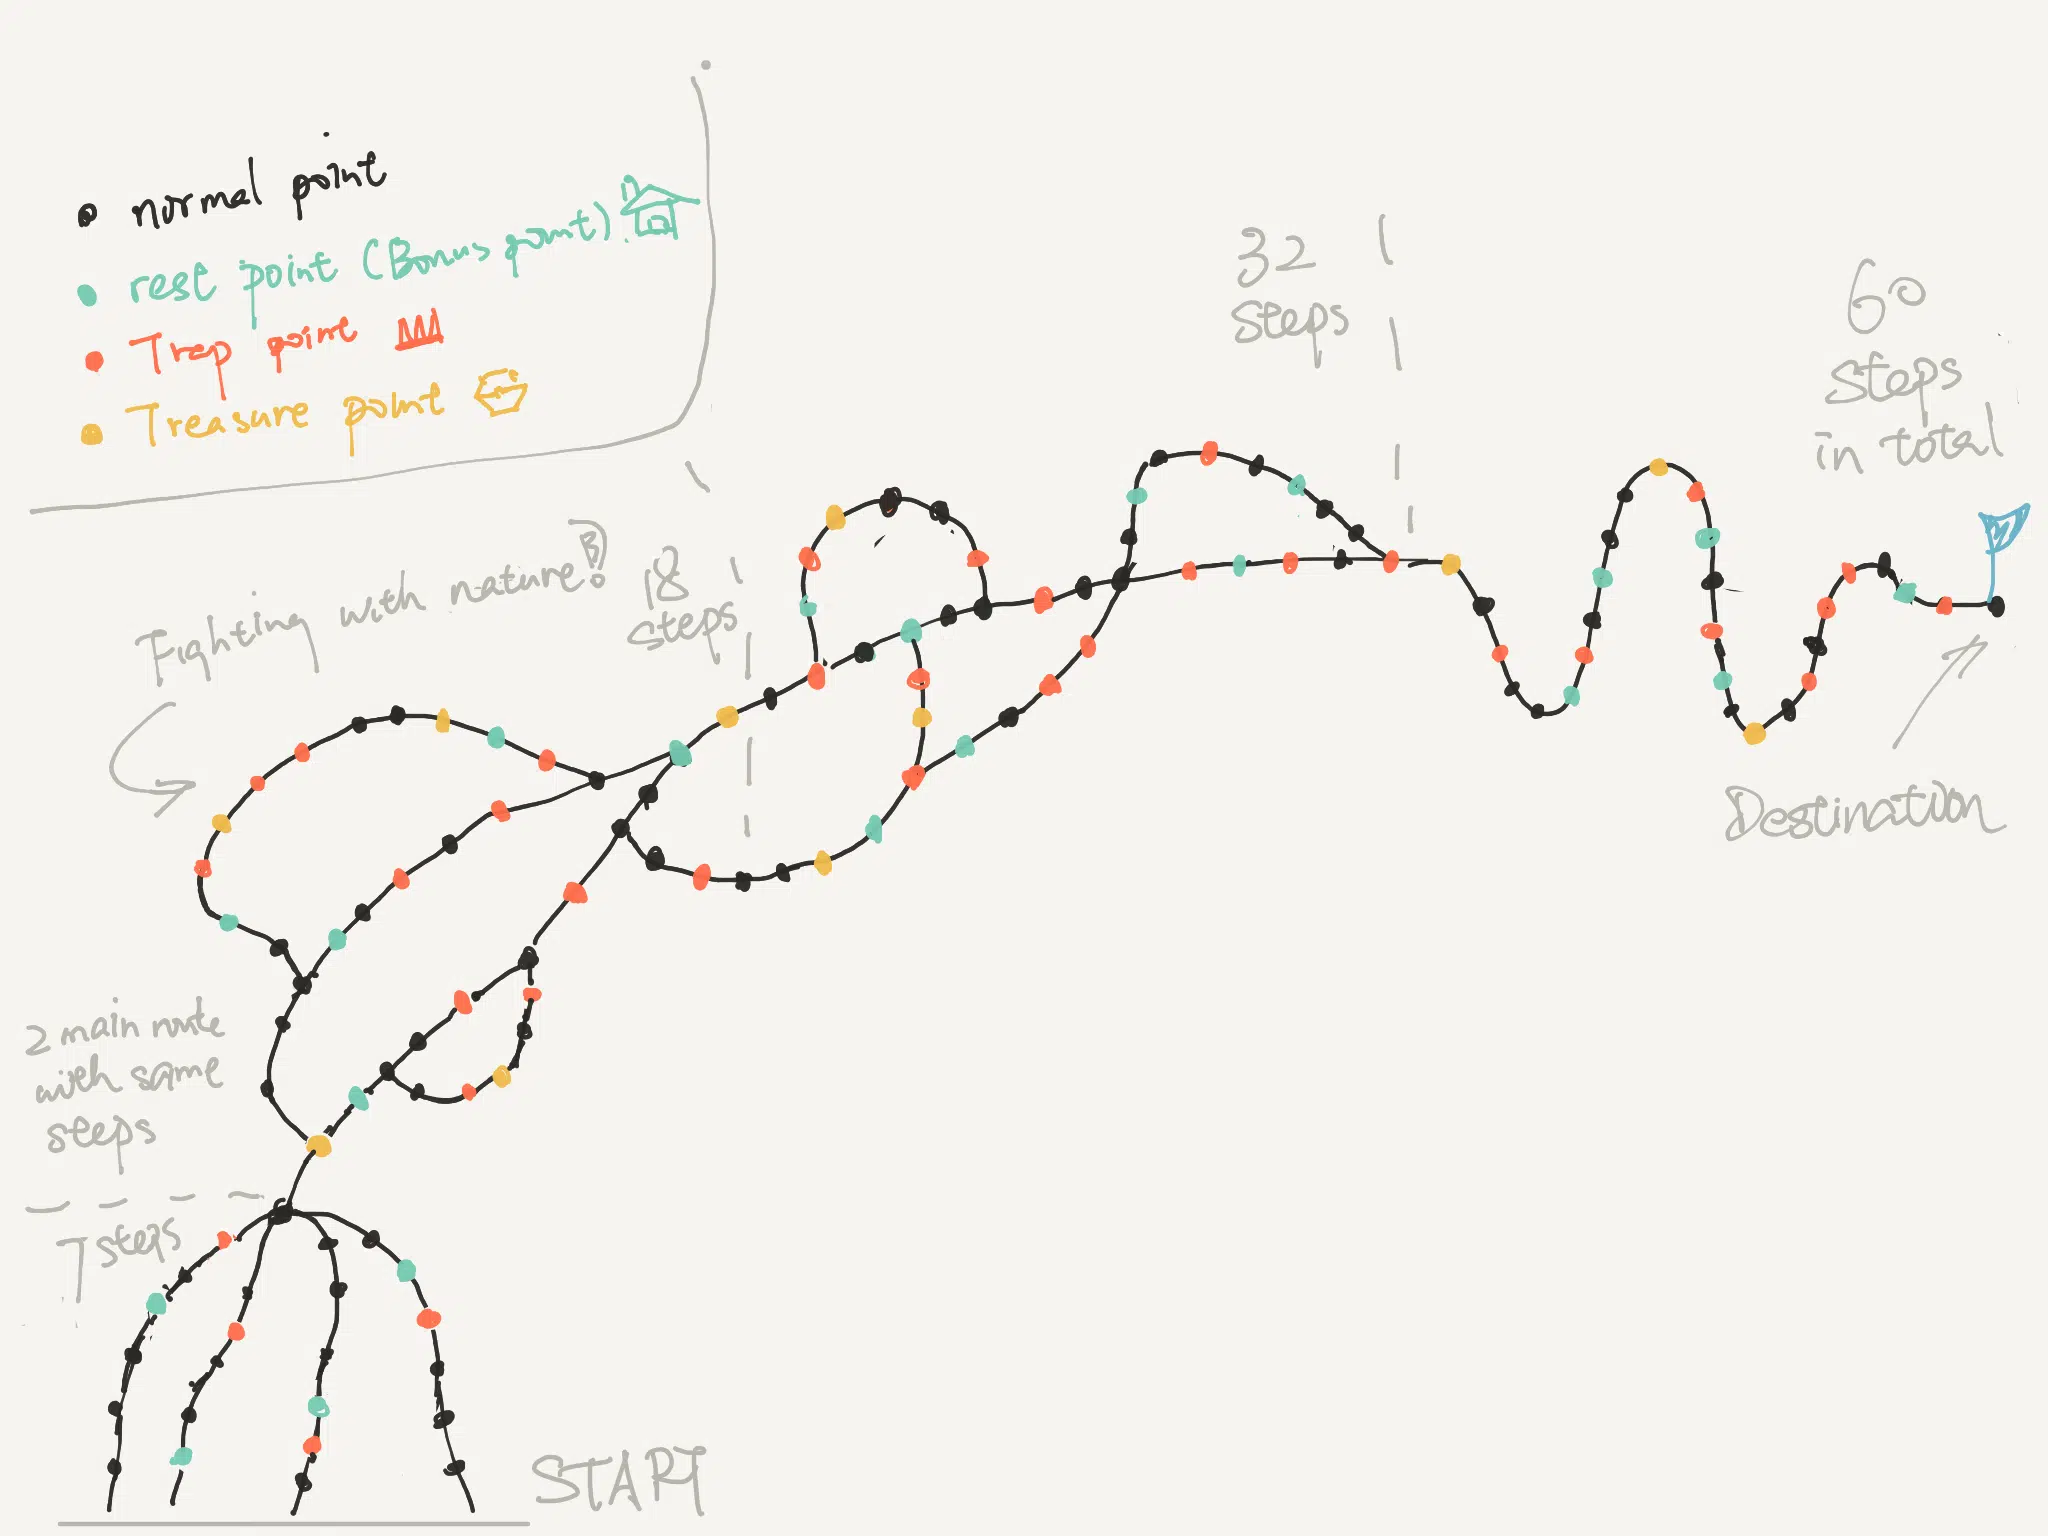 normal point
rest point (Bonus point)
Trap point
Treasure point
Fighting with nature!
18
steps
32
steps
60
steps
in total
Destination
2 main route
with same
steps
7 steps
START